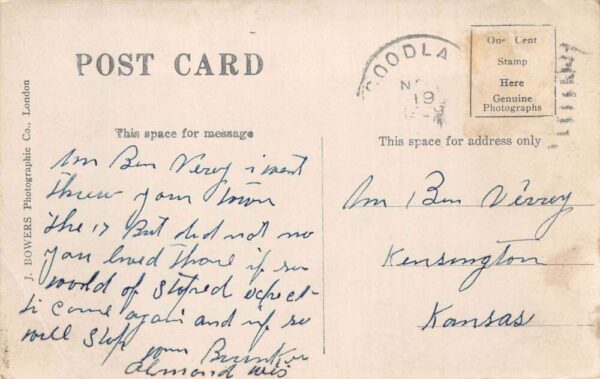 POST CARD
GOODLA
N
19
One Cent
Stamp
Here
Genuine
Photographs
This space for message
This space for address only
J. BOWERS Photographic Co., London
Mr Ben Verey i went
threw your town
the 17 But did not no
you lived there if so
world of stoped expect
to come again and if so
will stop
your
Almond Wis
Mr Ben Verrey
Kensington
Kansas